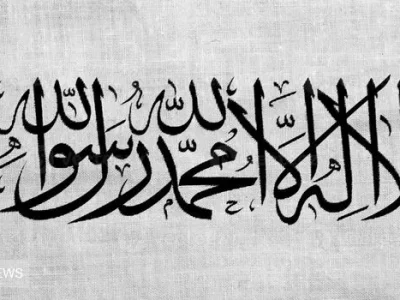 لا إله إلَّا الله محمَّد رسول الله
EWS